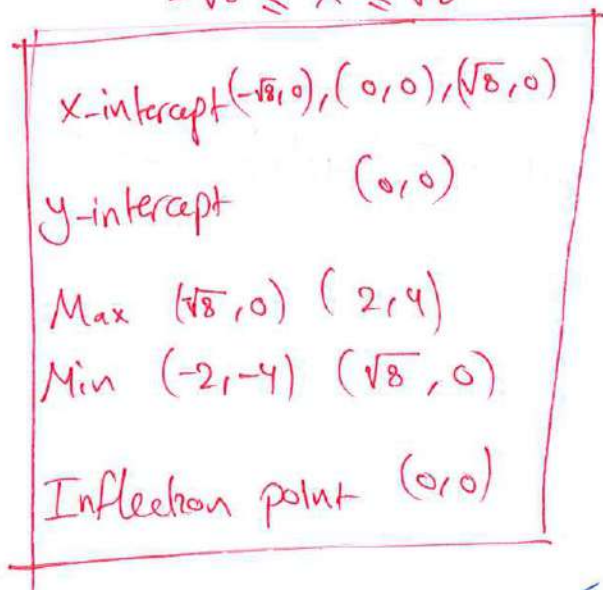 -√8 ≤ x ≤ √8
x-intercept (-√8,0), (0,0), (√8,0)
y-intercept (0,0)
Max (√8,0) (2,4)
Min (-2,-4) (√8,0)
Inflection point (0,0)